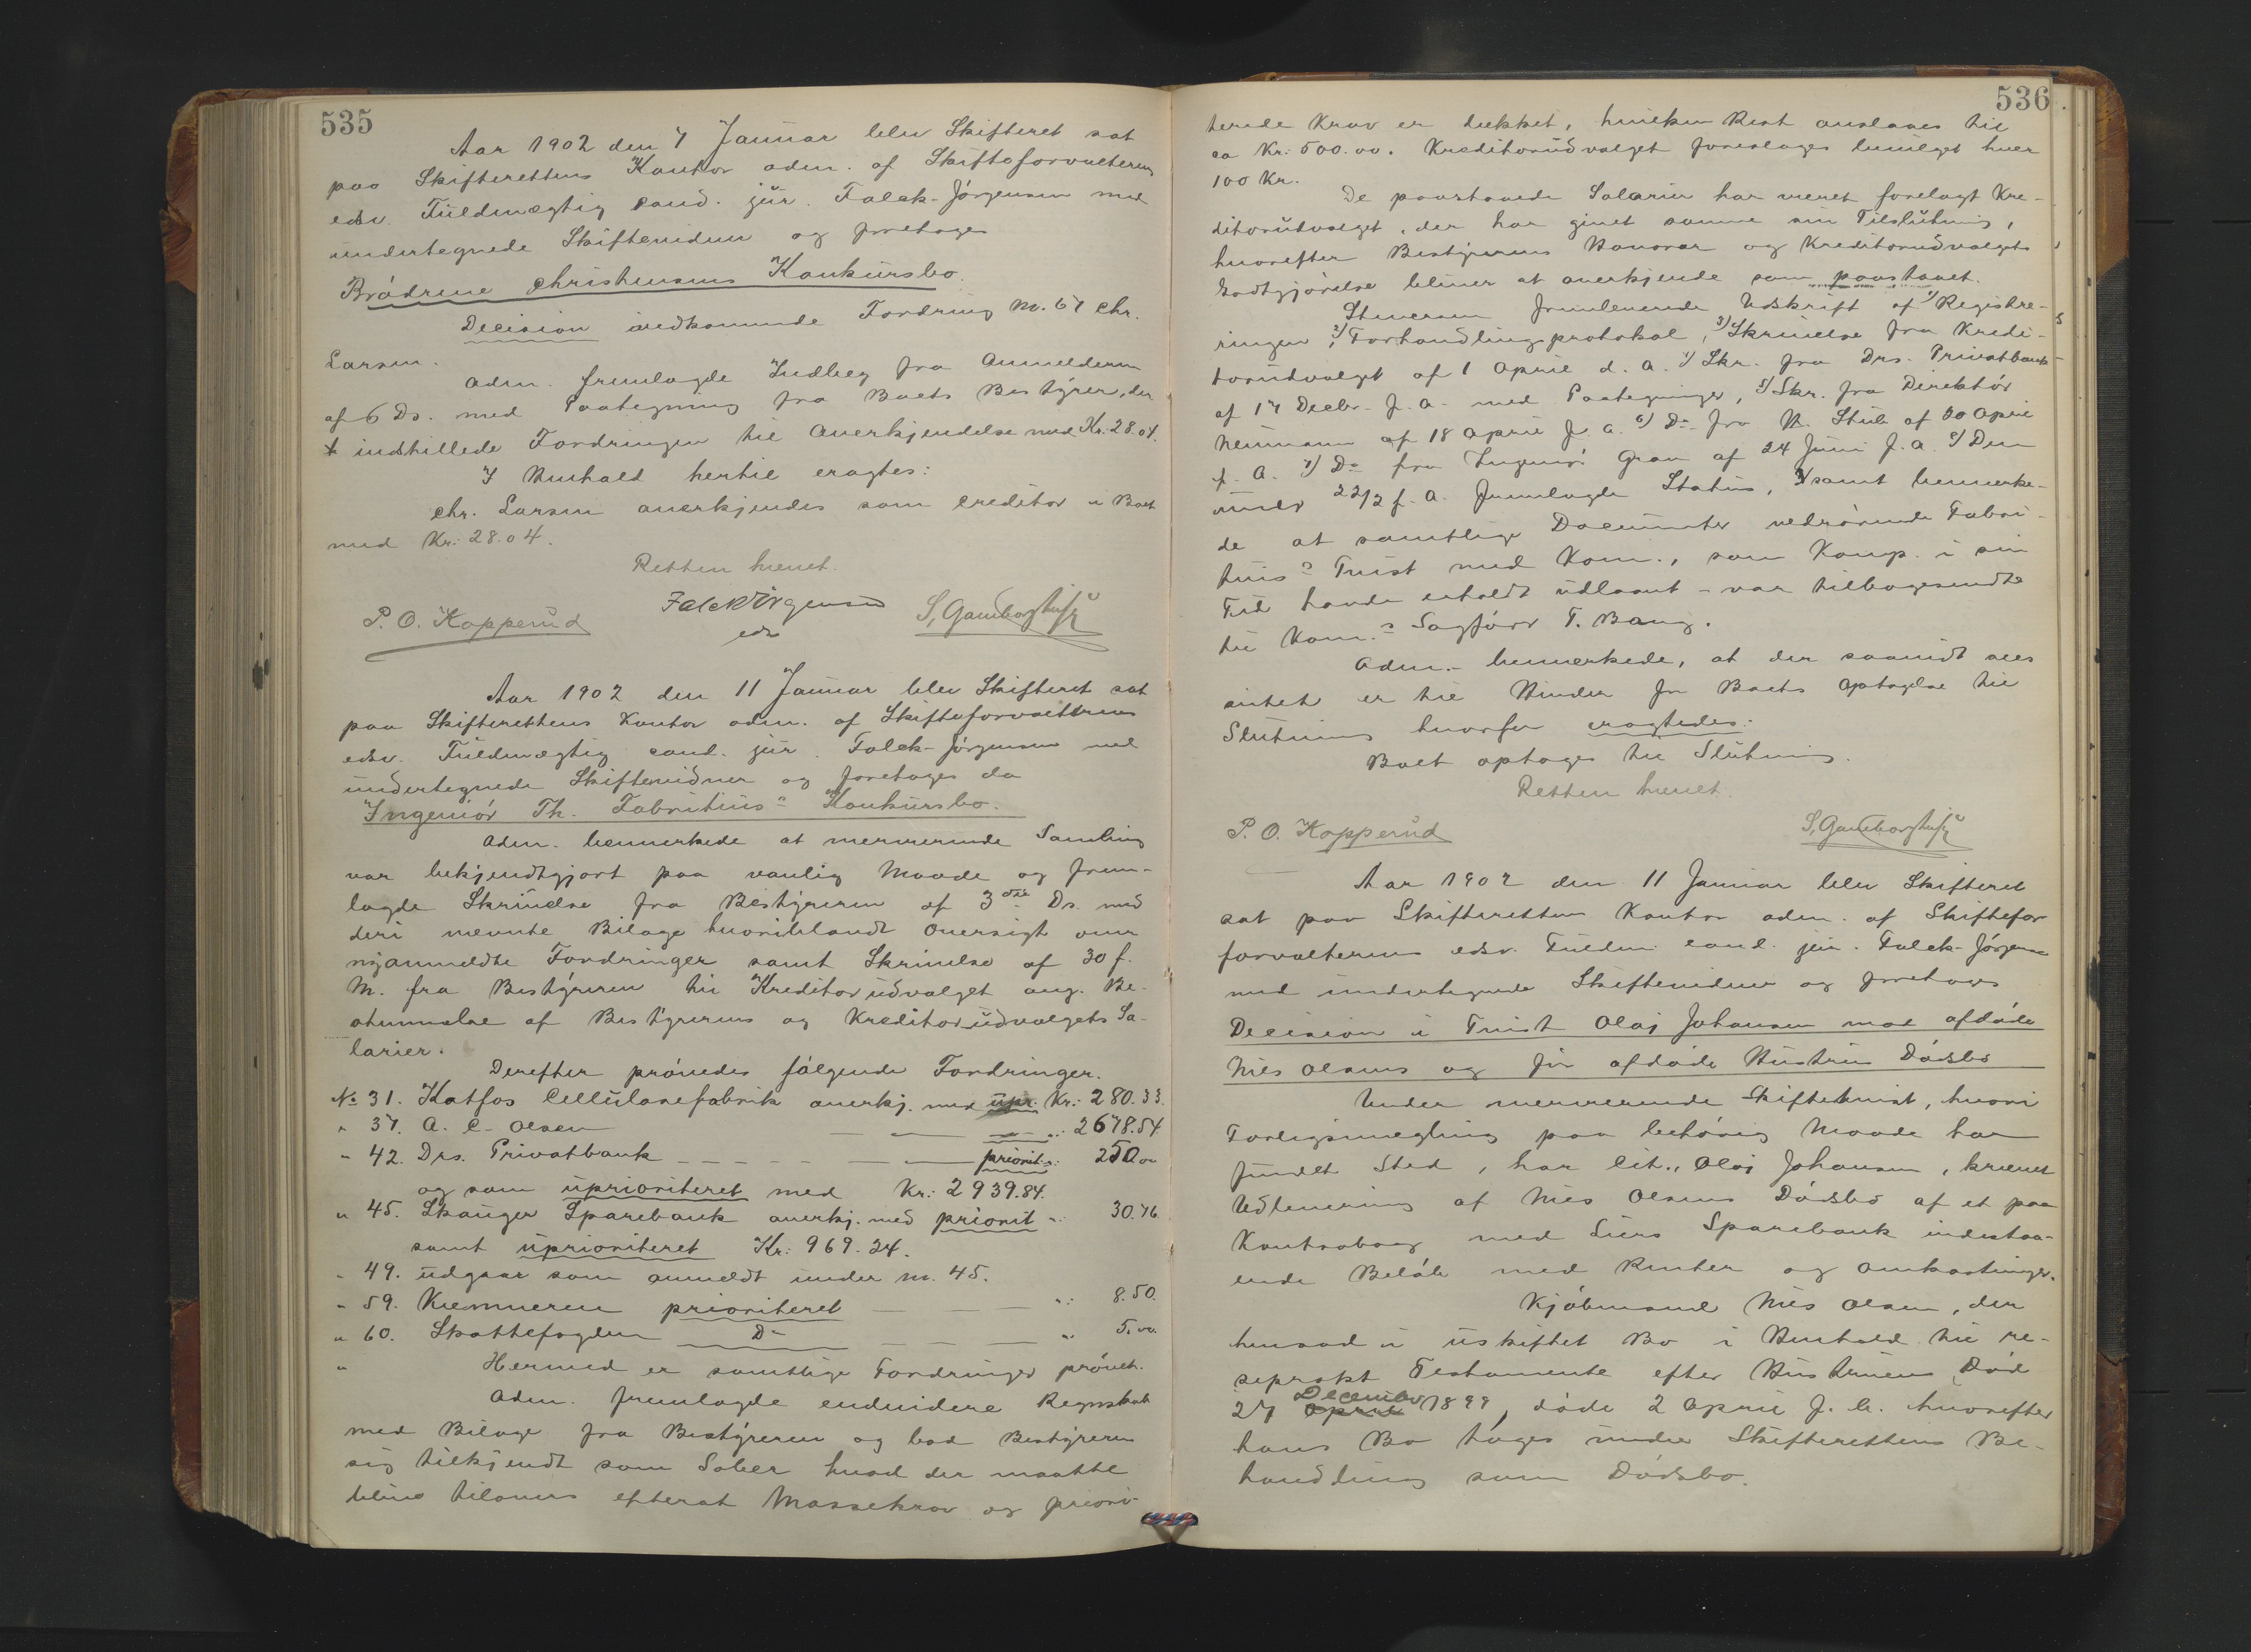 535
Aar 1902 den 7 Januar blev Skifteret sat
paa Skifterettens Kontor adm. af Skifteforvalterens
edsv. Fuldmægtig cand. jur. Falck-Jørgensen med
undertegnede Skiftevidner og foretoges
Brødrene Christensens Konkursbo.
Decision vedkommende Fordring N. 67 Chr.
Larsen.
Adm. fremlagde Indlæg fra Anmelderen
af 6 Ds. med Paategning fra Boets Bestyrer, der
indstillede Fordringen til Anerkjendelse med Kr. 28.04.
I Henhold hertil eragtes:
Chr. Larsen anerkjendes som Creditor i Boet
med Kr: 28.04.
Retten hævet.
P. O. Kopperud Falck Jørgensen
eds
Aar 1902 den 11 Januar blev Skifteret sat
paa Skifterettens Kontor adm. af Skifteforvalterens
edsv. Fuldmægtig cand. jur. Falck-Jørgensen med
undertegnede Skiftevidner og foretoges da
Ingeniør Th. Fabritius's Konkursbo.
Adm. bemerkede at nærværende Samling
var bekjendtgjort paa vanlig Maade og frem-
lagde Skrivelse fra Bestyreren af 3die Ds. med
deri nævnte Bilage hvoriblandt Oversigt over
nyanmeldte Fordringer samt Skrivelse af 30 f.
M. fra Bestyreren til Kreditorudvalget ang. Be-
stemmelse af Bestyrerens og Kreditorudvalgets Sa-
larier.
Derefter prøvedes følgende Fordringer.
No 31. Katfos Cellulosefabrik anerkj. med upr. Kr: 280.33.
" 37. A. C. Olsen — — ": 2678.54
" 42. Drs. Privatbank — — priorit. ": 250.00
og som uprioriteret med Kr: 2939.84.
" 45. Skauger Sparebank anerkj. med priorit ": 30.76
samt uprioriteret Kr: 969.24.
" 49. udgaar som anmeldt under N. 45.
" 59. Kæmneren prioriteret — — ": 8.50.
" 60. Skattefogden Do — — " 5.00.
" Hermed er samtlige Fordringer prøvet.
Adm. fremlagde endvidere Regnskab
med Bilage fra Bestyreren og bad Bestyreren
sig tilkjendt som Salær hvad der maatte
blive tilovers efterat Massekrav og priori-
536
terede Krav er dækket, hvilken Rest anslaaes til
ca Kr: 500.00. Kreditorudvalget foreslages bevilget hver
100 Kr.
De paastaaede Salarier har været forelagt Kre-
ditorudvalget, der har givet samme sin Tilslutning,
hvorefter Bestyrerens Honorar og Kreditorudvalgets
Godtgjørelse bliver at anerkjende som paastaaet.
fremleverede Udskrift af 1) Registre-
ringen, 2) Forhandlingsprotokol, 3) Skrivelse fra Kredi-
torudvalget af 1 April d. A. 4) Skr. fra Drs. Privatbank
af 17 Decbr. f. A. med Paategninger, 5) Skr. fra Direktør
Neumann af 18 April f. A. 6) Do fra N. Stub af 20 April
f. A. 7) Do fra Ingeniør Gran af 24 Juni f. A. 8) Den
under 22/2 f. A. fremlagde Status, samt bemerke-
de at samtlige Documenter vedrørende Fabri-
tius's Tvist med Kom., som Komp. i sin
Tid havde erholdt udlaant – var tilbagesendte
til Kom.s Sagfører T. Bang.
Adm. bemerkede, at der saavidt vees
intet er til Hinder for Boets Optagelse til
Slutning hvorfor eragtedes:
Boet optages til Slutning.
Retten hævet.
P. O. Kopperud
Aar 1902 den 11 Januar blev Skifteret
sat paa Skifterettens Kontor adm. af Skiftefor
forvalterens edsv. Fuldm. cand. jur. Falck-Jørgensen
med undertegnede Skiftevidner og foretoges
Decision i Tvist Olaj Johansen mod afdøde
Nils Olsens og før afdøde Hustrus Dødsbo
Under nærværende Skiftetvist, hvori
Forligsmegling paa behørig Maade har
fundet Sted, har Cit., Olaj Johansen, krævet
Udlevering af Nils Olsens Dødsbo af et paa
Kontrabog med Liers Sparebank indestaa-
ende Beløb med Renter og Omkostninger.
Kjøbmand Nils Olsen, der
hensad i uskiftet Bo i Henhold til re-
ciprokt Testamente efter Hustruens Død
27 April December 1899, døde 2 April f. A. hvorefter
hans Bo toges under Skifterettens Be-
handling som Dødsbo.